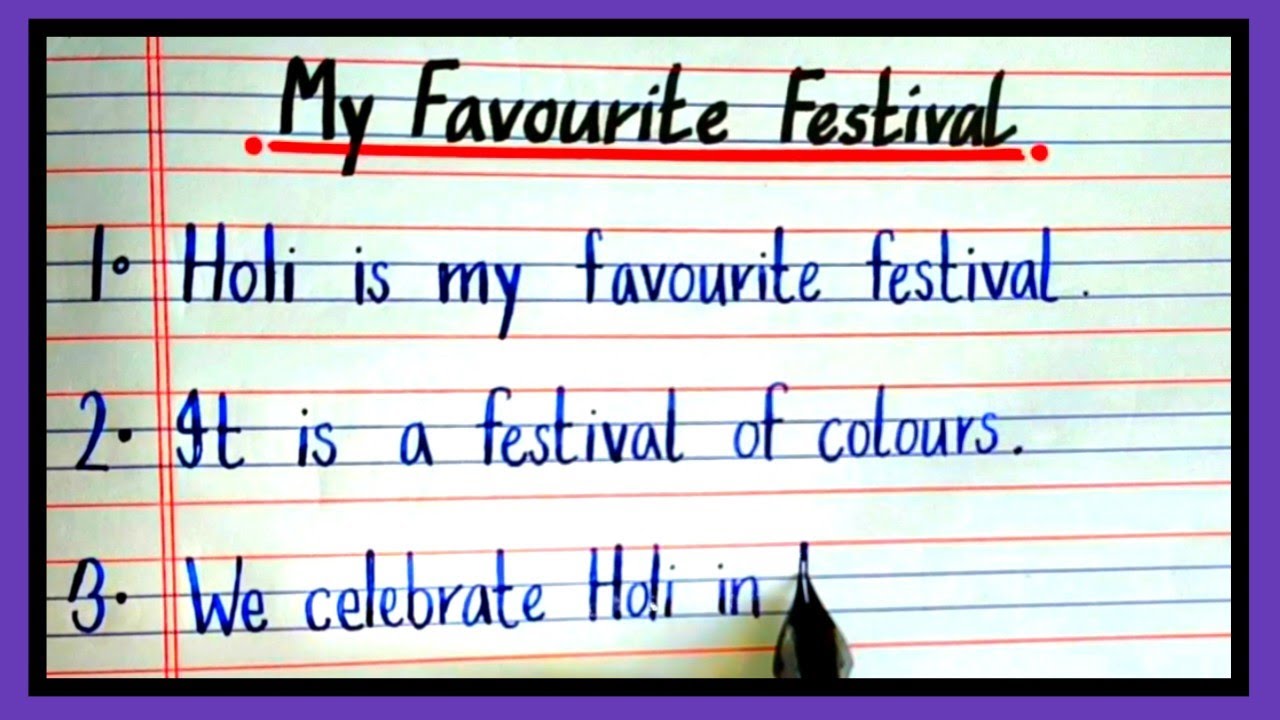 My Favourite Festival
1. Holi is my favourite festival.
2. It is a festival of colours.
3. We celebrate Holi in